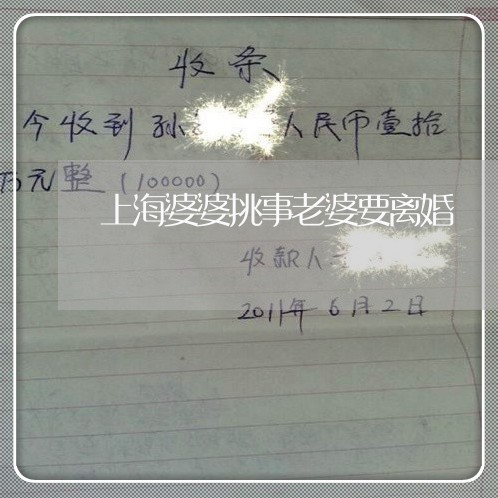 收条
今收到孙 人民币壹拾
万元整(100000)
上海婆婆挑事老婆要离婚
收款人
2011年6月2日